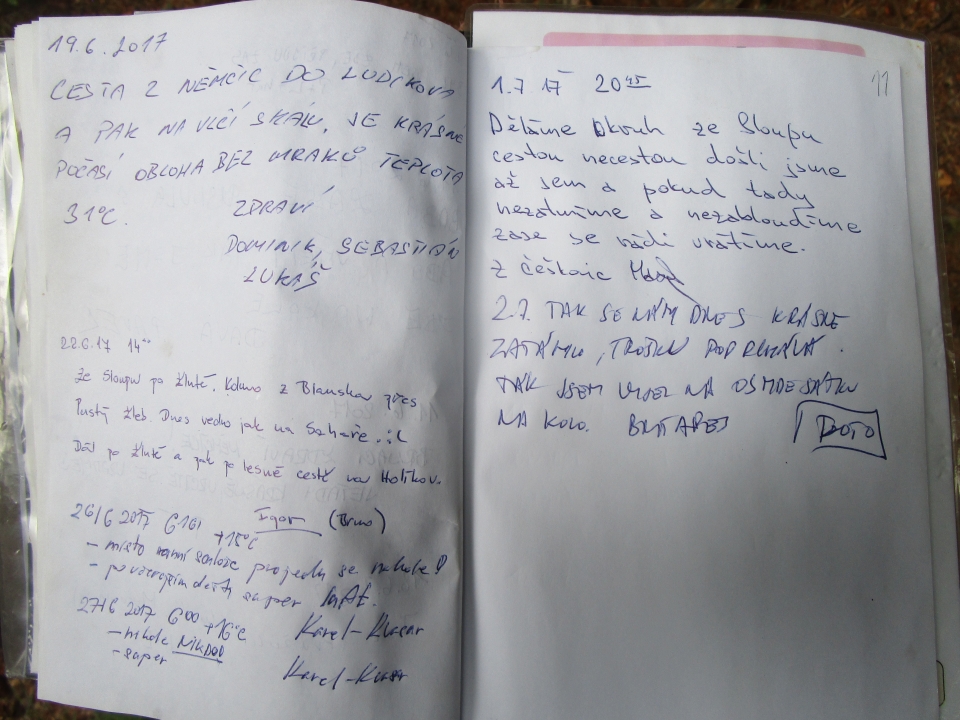 19.6.2017
CESTA Z NĚMČIC DO LUDÍKOVA
A PAK NA VLČÍ SKÁLU. JE KRÁSNÉ
POČASÍ OBLOHA BEZ MRAKŮ TEPLOTA
31°C. ZDRAVÍ
DOMINIK, SEBASTIÁN
LUKÁŠ
22.6.17 14°°
Ze Sloupu po žluté. Kolmo z Blanska přes
Pustý žleb. Dnes vedro jak na Sahaře. :(
Dál po žluté a pak po lesně cestě na Holíkov.
Igor (Brno)
26/6 2017 +15°C
- místo ranní projedu se na kole!
- po dešti super
Karel-
27/6 2017 600 +16°C
- nikde NIKDO
- super
Karel-
11
1.7 17 20 45
Děláme okruh ze Sloupu
cestou necestou došli jsme
až sem a pokud tady
nezahyneme a nezabloudíme
zase se rádi vrátíme.
z Češkovic
2.7. TAK SE NÁM DNES KRÁSNĚ
ZATÁHLO, TROŠKU POPRCHÁVÁ.
TAK JSEM VYJEL NA OSMDESÁTKU
NA KOLO.